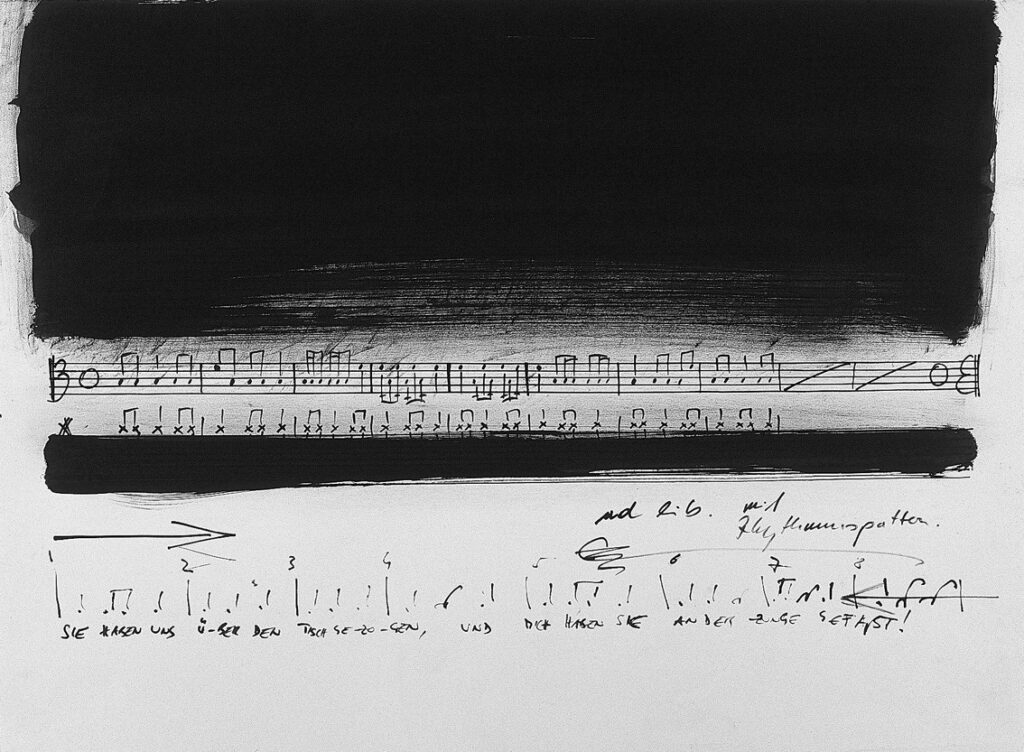 ad lib. mit
Rhythmuspattern.
1 2 3 4 5 6 7 8
SIE HABEN UNS Ü-BER DEN TISCH GE-ZO-GEN, UND DICH HABEN SIE AN DER ZUNGE GEFAßT!